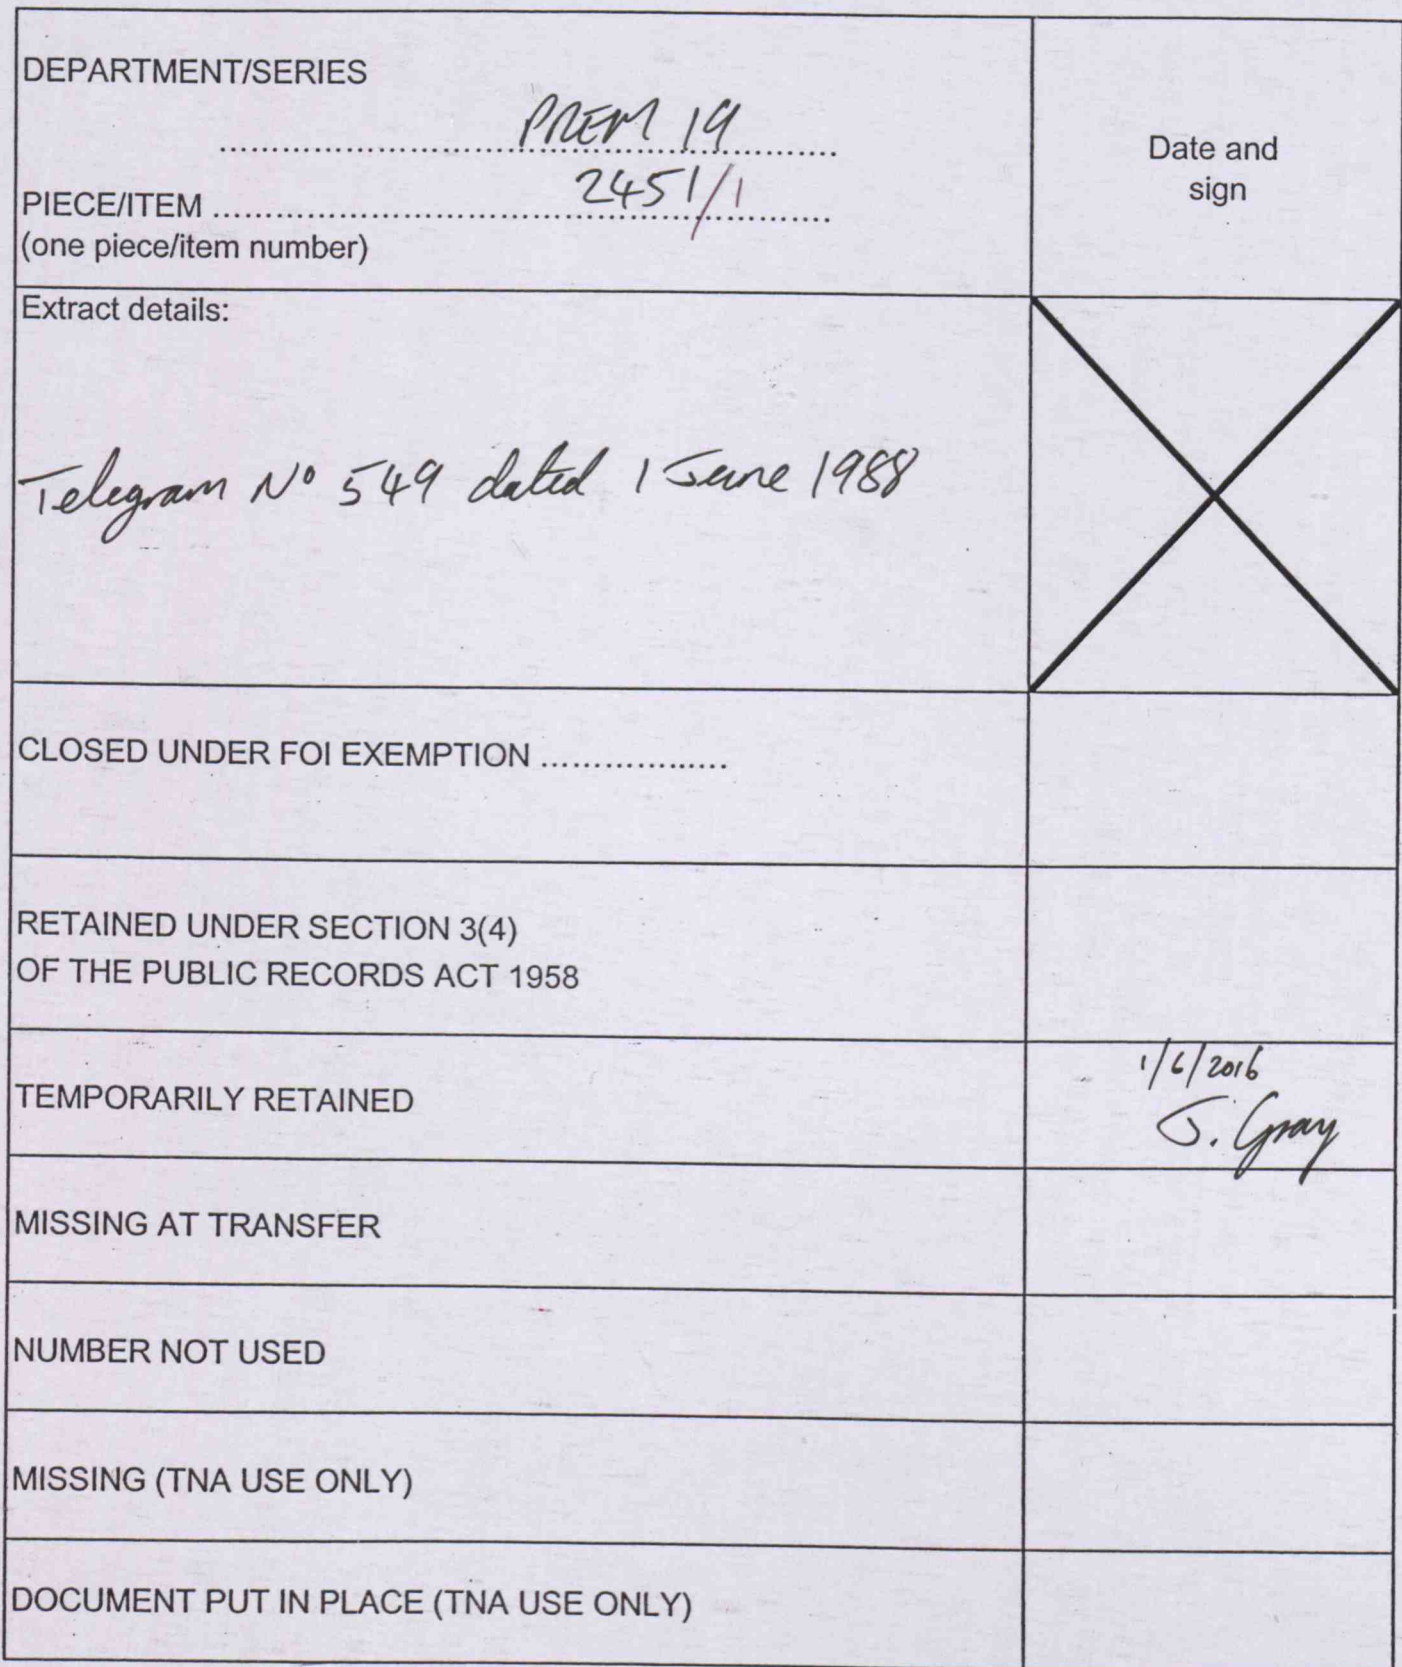 DEPARTMENT/SERIES
PREM 19
Date and
sign
PIECE/ITEM 2451/1
(one piece/item number)
Extract details:
Telegram Nº 549 dated 1 June 1988
CLOSED UNDER FOI EXEMPTION
RETAINED UNDER SECTION 3(4)
OF THE PUBLIC RECORDS ACT 1958
TEMPORARILY RETAINED
1/6/2016
J. Gray
MISSING AT TRANSFER
NUMBER NOT USED
MISSING (TNA USE ONLY)
DOCUMENT PUT IN PLACE (TNA USE ONLY)